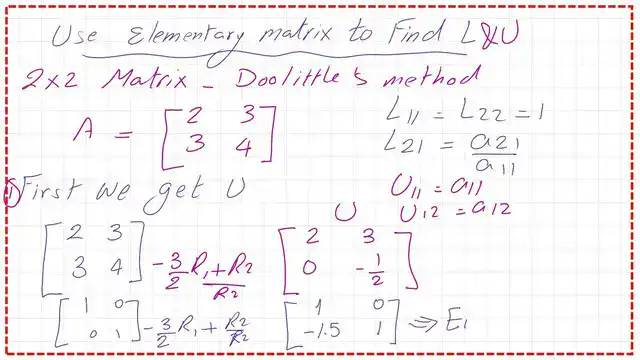 Use Elementary matrix to Find L&U
2x2 Matrix - Doolittle's method
A = [2 3
3 4]
L11 = L22 = 1
L21 = a21/a11
① First we get U
U11 = a11
U12 = a12
U
[2 3
3 4] -3/2 R1 + R2 / R2 [2 3
0 -1/2]
[1 0
0 1] -3/2 R1 + R2/R2 [1 0
-1.5 1] ⇒ E1